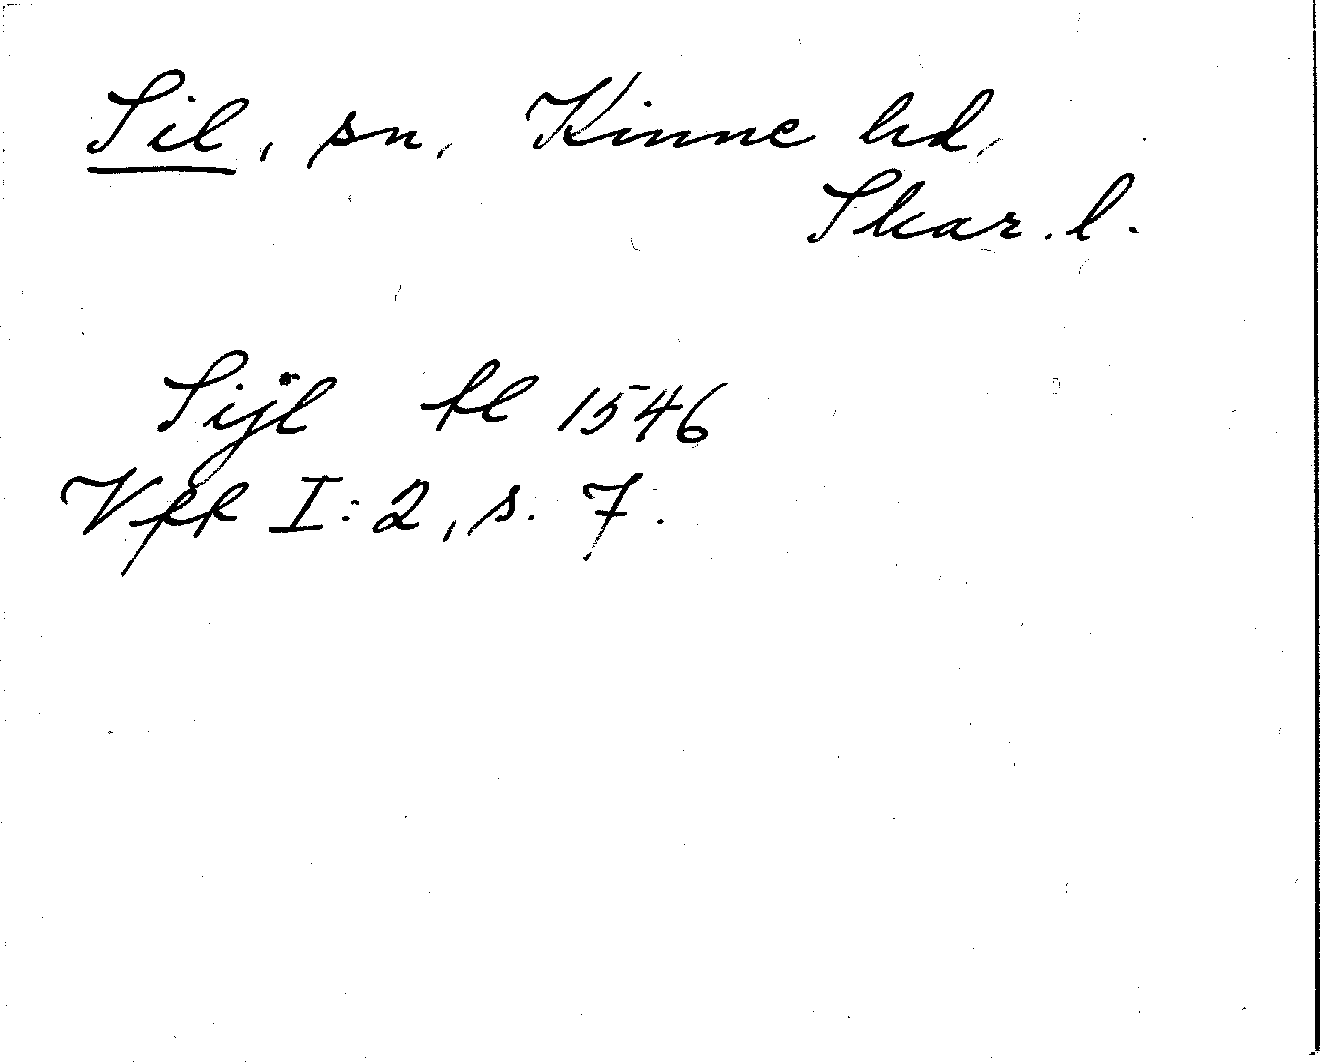 Sil, sn, Kinne hd,
Skar. l.
Sijl fl 1546
Vfk I:2, s. 7.